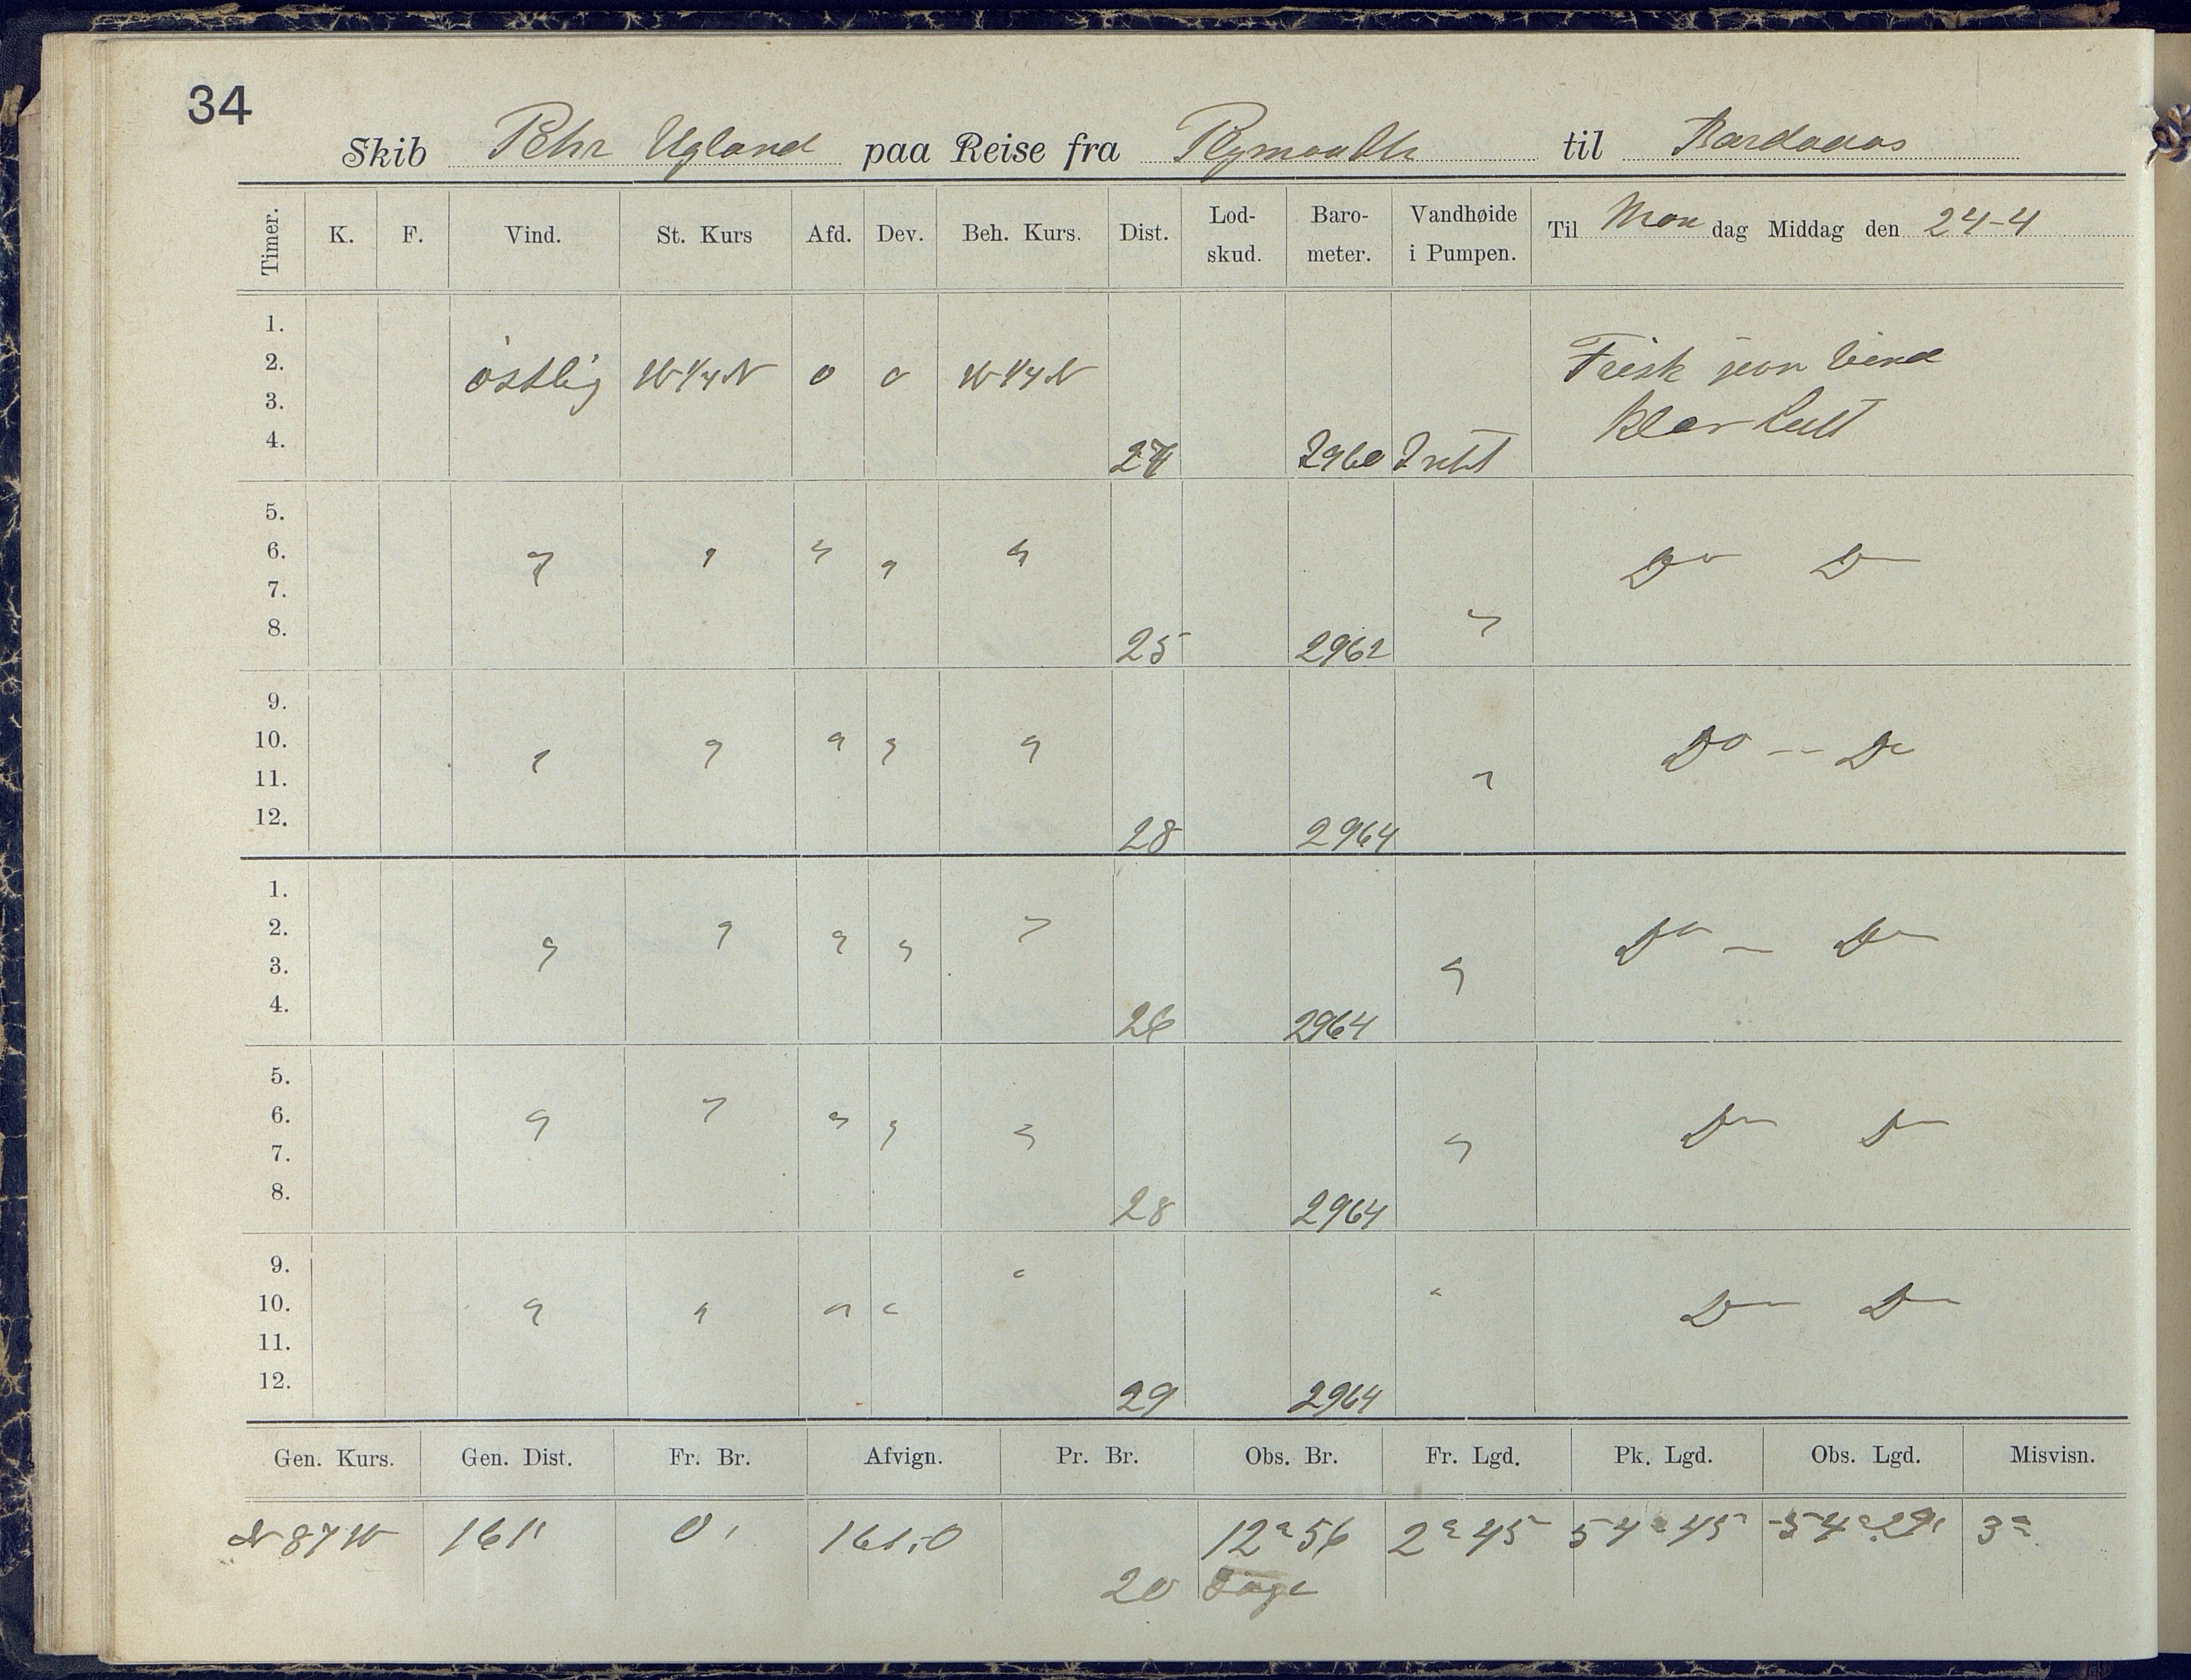 34
Skib Pehr Ugland paa Reise fra Plymouth til Bardados
Timer. K. F. Vind. St. Kurs Afd. Dev. Beh. Kurs. Dist. Lod-skud. Baro-meter. Vandhøide i Pumpen. Til Man dag Middag den 24-4
1.
2. østlig W 1/4 N 0 0 W 1/4 N Frisk jevn Vind
3. Klar Luft
4. 24 2960 Intet
5.
6. " " " " " Do Do
7.
8. 25 2962 "
9.
10. " " " " " Do -- Do
11. "
12. 28 2964
1.
2. " " " " " Do - Do
3. "
4. 26 2964
5.
6. " " " " " Do Do
7. "
8. 28 2964
9. "
10. " " " " " Do Do
11.
12. 29 2964
Gen. Kurs. Gen. Dist. Fr. Br. Afvign. Pr. Br. Obs. Br. Fr. Lgd. Pk. Lgd. Obs. Lgd. Misvisn.
N 87 W 161' 0' 161,0 12° 56 2° 45 54° 45 54° 29' 3°
20 Dage